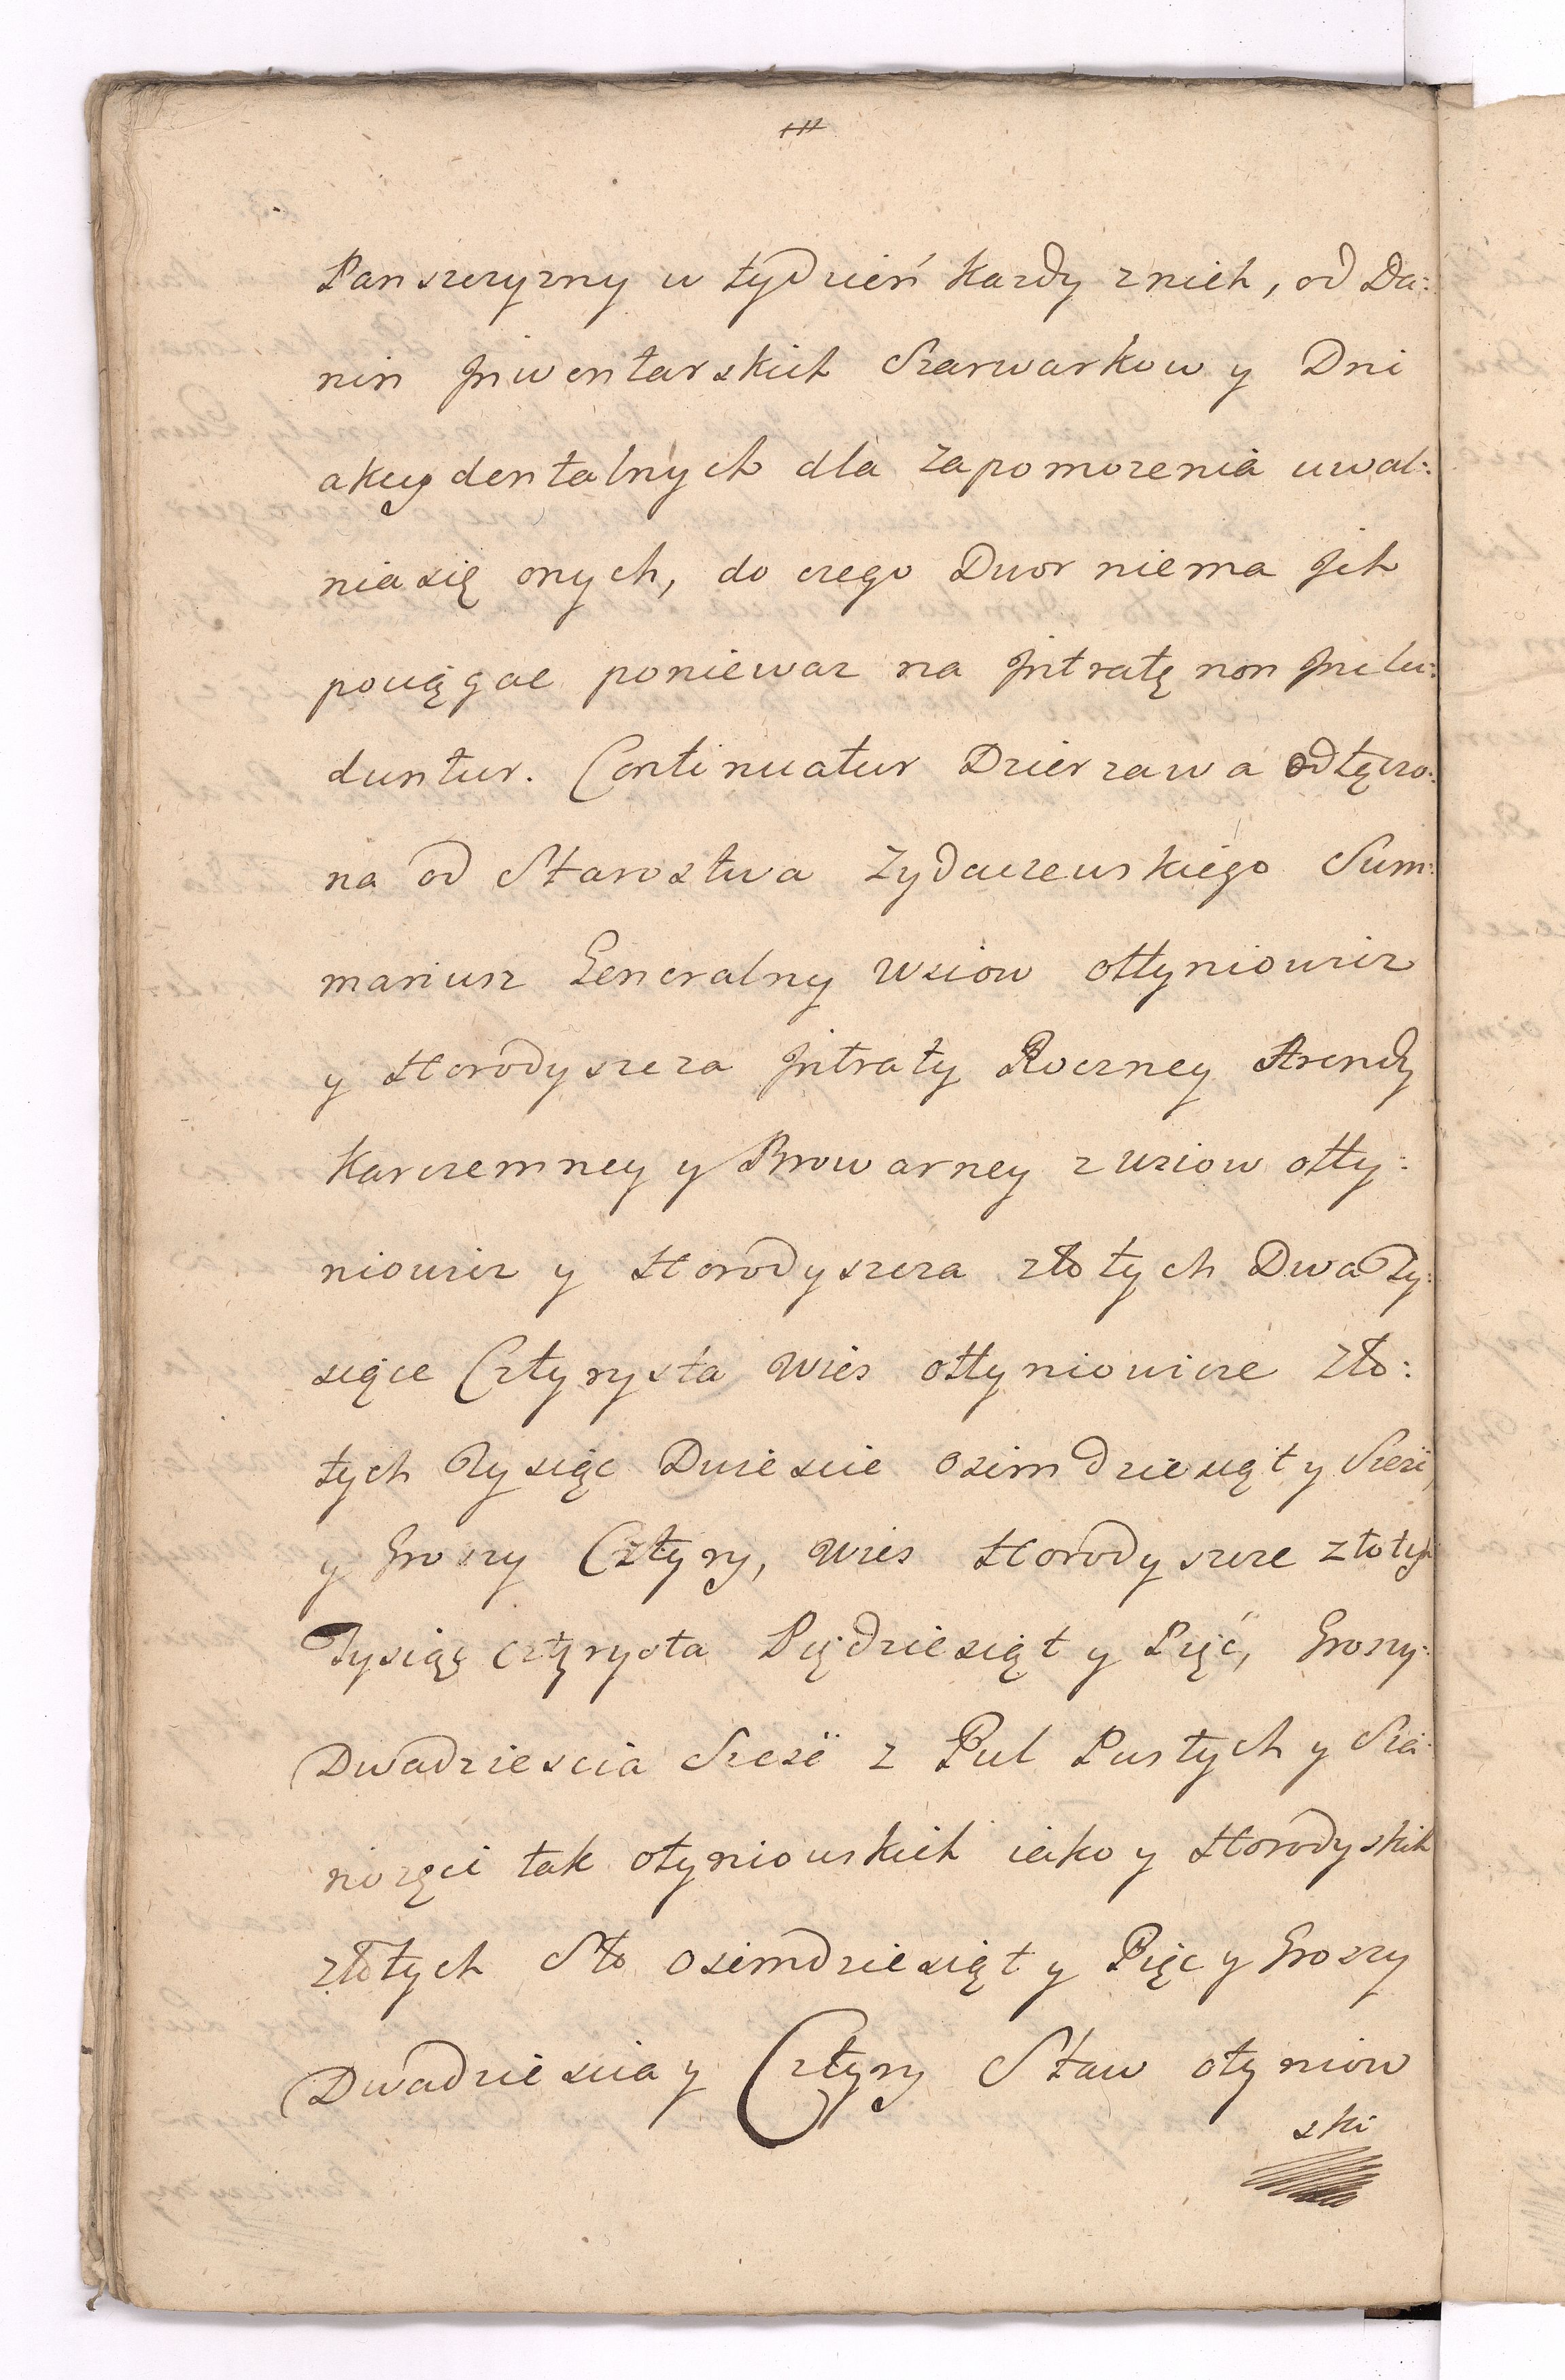 Panszczyzny w tydzień Kazdy z nich, od Da:
nin Jnwentarskich Szarwarkow y Dni
akcydentalnych dla zapomozenia uwal:
nia się onych, do czego Dwor niema Jch
pociągac poniewaz na Jntratę non Jnclu:
duntur. Continuatur Dzierzawa odłęczo:
na od Starostwa Zydaczewskiego Sum:
mariusz Generalny wsiow ottyniowicz
y Horodyszcza Jntraty Roczney Arendy
Karczemney y Browarney z wsiow otty:
niowicz y Horodyszcza złotych Dwa Ty:
siące Cztyrysta wies ottyniowicze zło:
tych Tysiąc Dwiescie osimdziesiąt y Szesć
y Groszy Cztyry, wies Horodyszcze złotych
Tysiąc cztyrysta Piędziesiąt y Pięć, Groszy:
Dwadziescia Szesć z Pul Pustych y Sia:
nozęci tak otyniowskich iako y Horodyskich
złotych Sto osimdziesiąt y Pięc y Groszy
Dwadziescia y Cztyry Staw otyniow
ski